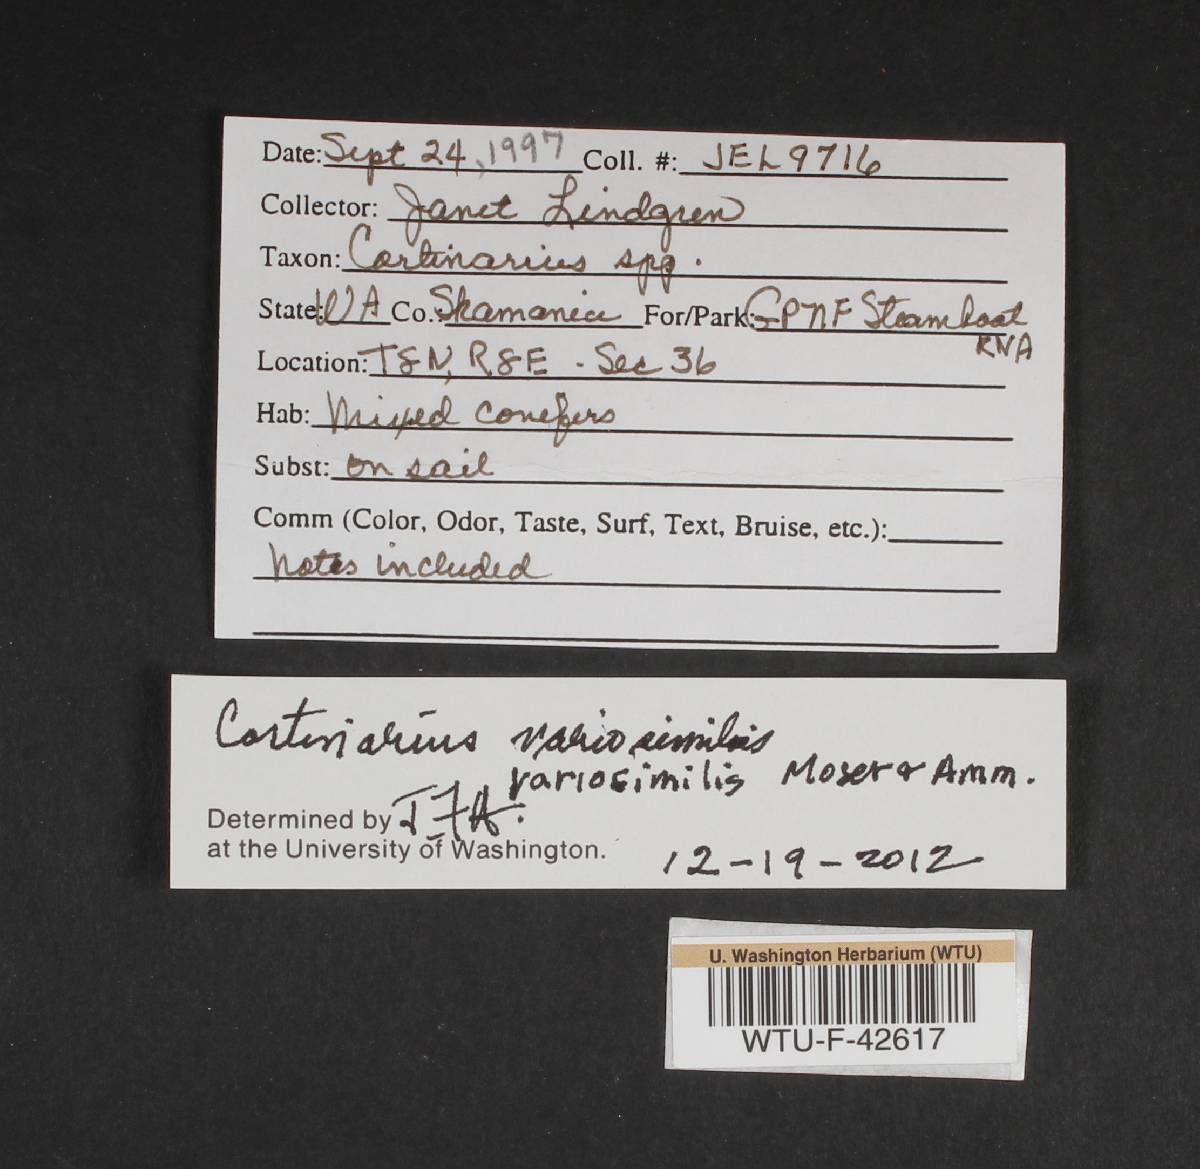 Date: Sept 24, 1997 Coll. #: JEL9716
Collector: Janet Lindgren
Taxon: Cortinarius spp.
State: WA Co.: Skamania For/Park: GPNF Steamboat
RNA
Location: T8N, R8E - Sec 36
Hab: Mixed conefers
Subst: on soil
Comm (Color, Odor, Taste, Surf, Text, Bruise, etc.):
Notes included
Cortinarius variosimilis
variosimilis Moser & Amm.
Determined by J F A.
at the University of Washington.
12-19-2012
U. Washington Herbarium (WTU)
WTU-F-42617